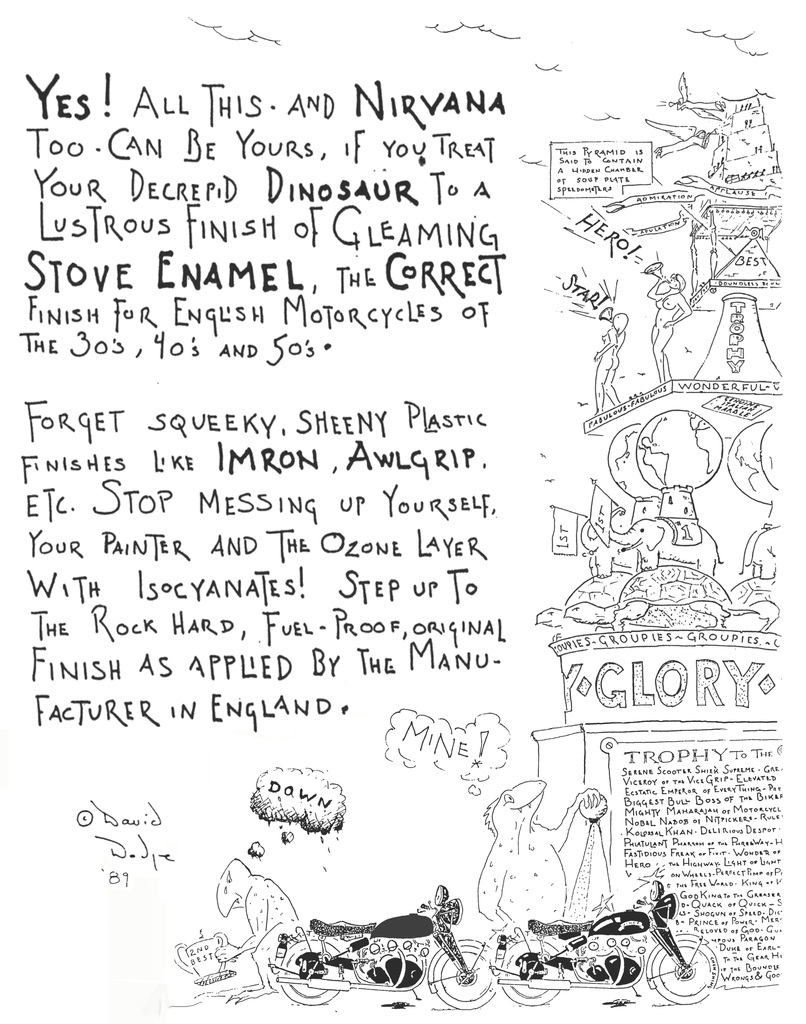 YES! ALL THIS. AND NIRVANA
TOO. CAN BE YOURS, IF YOU TREAT
YOUR DECREPID DINOSAUR TO A
LUSTROUS FINISH OF GLEAMING
STOVE ENAMEL, THE CORRECT
FINISH FOR ENGLISH MOTORCYCLES OF
THE 30's, 40's AND 50's.
FORGET SQUEEKY, SHEENY PLASTIC
FINISHES LIKE IMRON, AWLGRIP,
ETC. STOP MESSING UP YOURSELF,
YOUR PAINTER AND THE OZONE LAYER
WITH ISOCYANATES! STEP UP TO
THE ROCK HARD, FUEL-PROOF, ORIGINAL
FINISH AS APPLIED BY THE MANU-
FACTURER IN ENGLAND.
THIS PYRAMID IS
SAID TO CONTAIN
A HIDDEN CHAMBER
OF SOUP PLATE
SPEEDOMETERS
APPLAUSE
ADMIRATION
ADULATION
HERO!
BEST
STAR!
TROPHY
WONDERFUL
FABULOUS-FABULOUS
GENUINE
ITALIAN
MARBLE!
1ST
1ST
1
OUPIES-GROUPIES~GROUPIES
Y◇GLORY◇
MINE!
TROPHY TO THE
SERENE SCOOTER SHIEK SUPREME - GRE
VICEROY OF THE VICE GRIP - ELEVATED
ECSTATIC EMPEROR OF EVERYTHING - PET
BIGGEST BULL BOSS OF THE BIKE
MIGHTY MAHARAJAH OF MOTORCYCL
NOBEL NABOB OF NITPICKERS - RULE
KOLOSSAL KHAN - DELIRIOUS DESPOT
PHLATULANT PHARAOH OF THE PHREEWAY - H
FASTIDIOUS FREAK OF FINIT - WONDER OF
HERO THE HIGHWAY - LIGHT OF LIGHT
ON WHEELS - PERFECT PIMP OF P
THE FREE WORLD. KING OF
GOD KING TO THE GREASER
QUACK OF QUICK - S
SHOGUN OF SPEED - DIC
PRINCE OF POWER - MER
BELOVED OF GOD - GU
MPOUS PARAGON
DUKE OF EARL
TO THE GEAR H
OF THE BOUNDLE
WRONGS & GOO
DOWN
© David
Dodge
'89
2ND
BEST